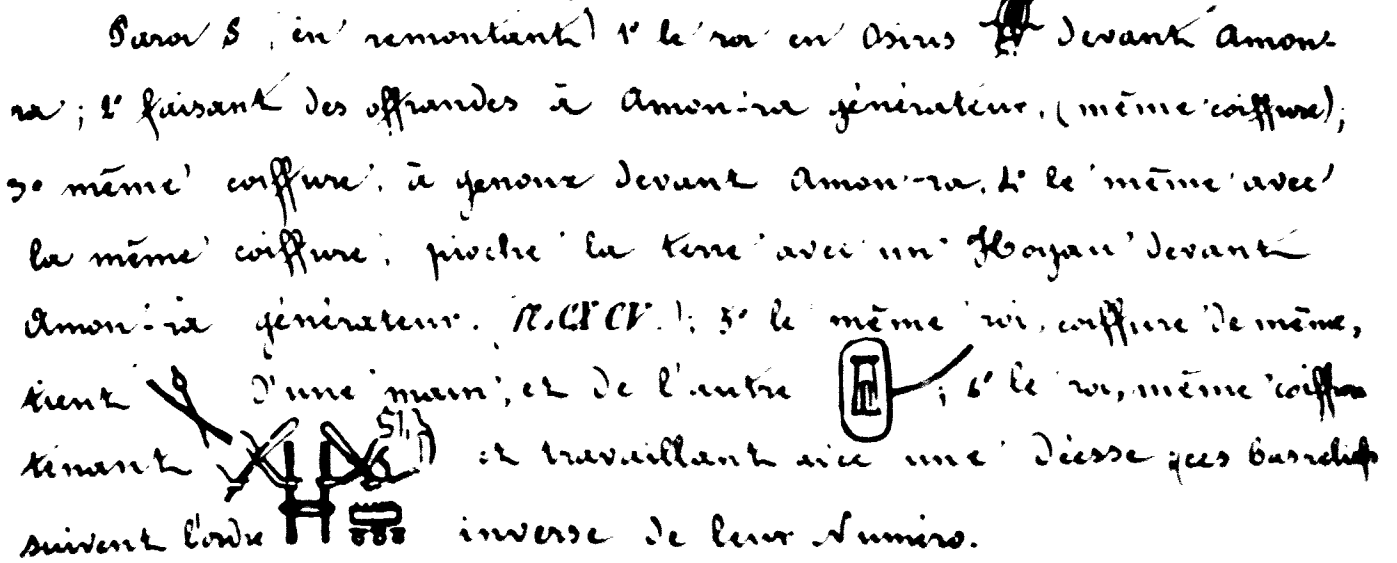 Paroi S, en remontant) 1° le roi en Osiris devant Amon-
ra; 2° faisant des offrandes à Amon-ra générateur, (même coiffure);
3° même coiffure, à genoux devant Amon-ra, 4° le même avec
la même coiffure, pioche la terre avec un Hoyau devant
Amon-ra générateur. (N. CXCV.); 5° le même roi, coiffure de même,
tient d'une main, et de l'autre ; 6° le roi, même coiffure
tenant et travaillant avec une Déesse (ces basreliefs
suivent l'ordre inverse de leur Numéro.